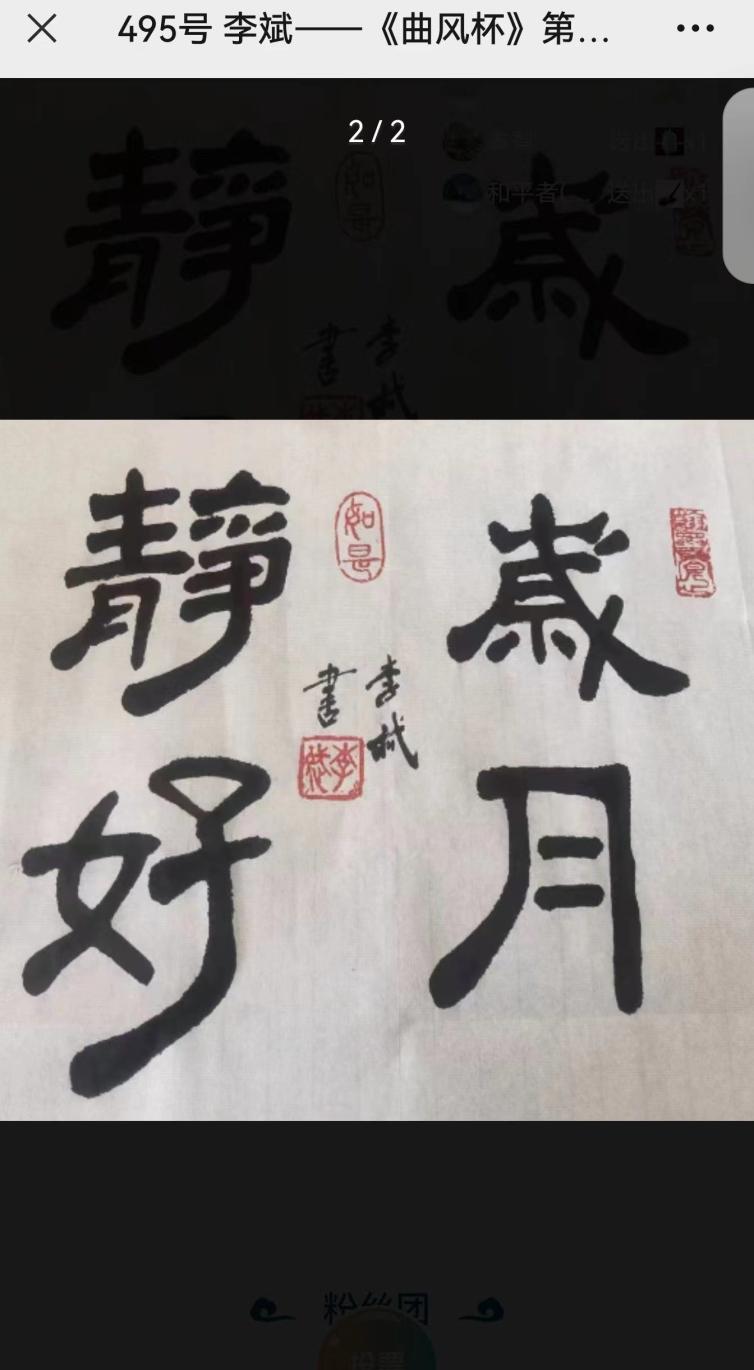 495号 李斌——《曲风杯》第...
2/2
和平者(... 送出 x1
歲月
靜好
如是
李斌
書
粉丝团
投票